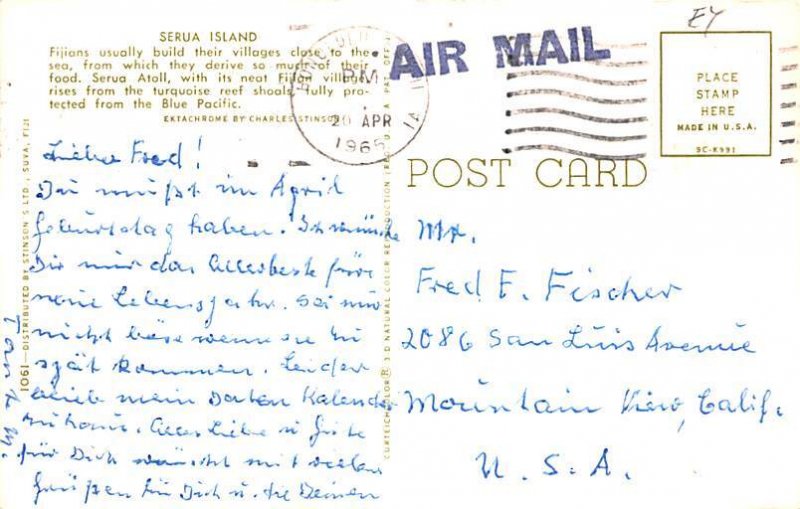 SERUA ISLAND
Fijians usually build their villages close to the
sea, from which they derive so much of their
food. Serua Atoll, with its neat Fijian village
rises from the turquoise reef shoals, fully pro-
tected from the Blue Pacific.
EKTACHROME BY CHARLES STINSON
AIR MAIL
PM
2 APR
1965
EY
PLACE
STAMP
HERE
MADE IN U.S.A.
SC-K991
POST CARD
1061—DISTRIBUTED BY STINSON'S LTD., SUVA, FIJI
3 D NATURAL COLOR REPRODUCTION U.S.A. PAT. OFF.
Lieber Fred!
Du mußt im April
Geburtstag haben. Ich wünsche
Dir nur das Allerbeste fürs
neue Lebensjahr. Sei mir
nicht böse wenn sie zu
spät kommen. Leider
blieb mein Daten Kalender
zuhaus. Alles Liebe u Gute
für Dich wünscht mit vielen
Grüßen für Dich u. die Deinen
Mr.
Fred E. Fischer
2086 San Luis Avenue
Mountain View, Calif.
U. S. A.